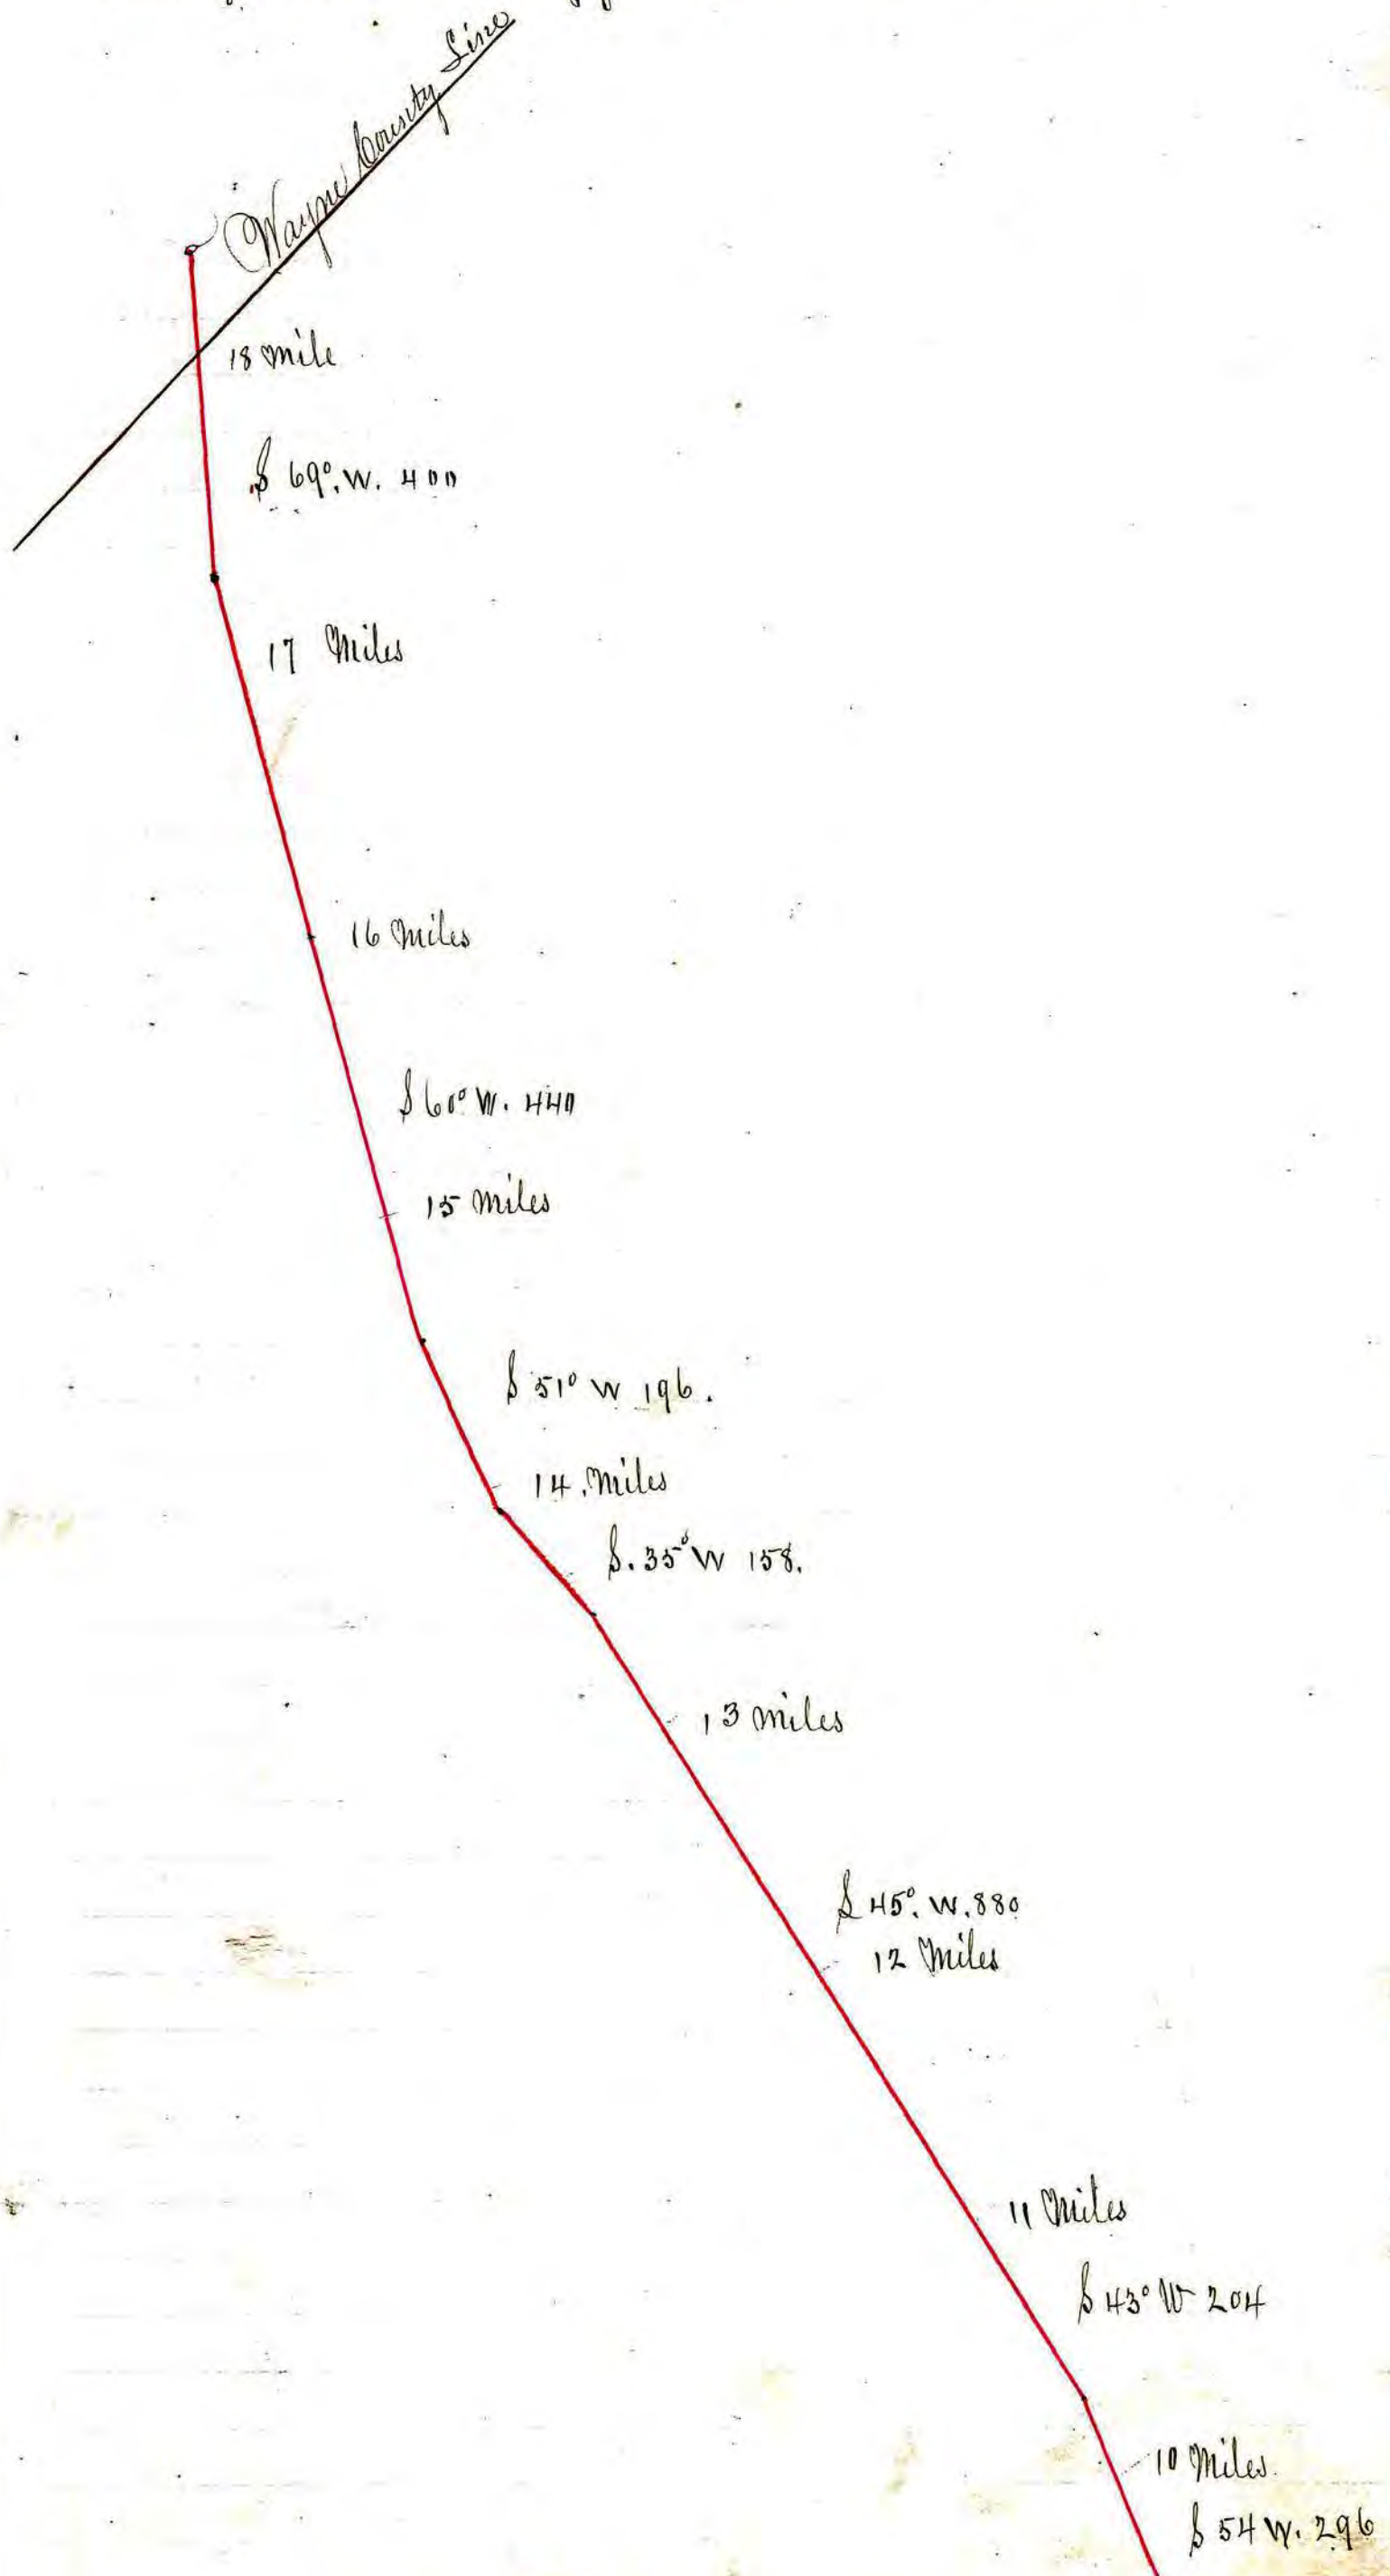 Wayne County Line
18 mile
S 69°. W. 400
17 Miles
16 Miles
S 60° W. 440
15 Miles
S 51° W 196.
14. Miles
S. 35° W 158.
13 miles
S 45°. W. 880
12 Miles
11 Miles
S 43° W 204
10 Miles.
S 54 W. 296